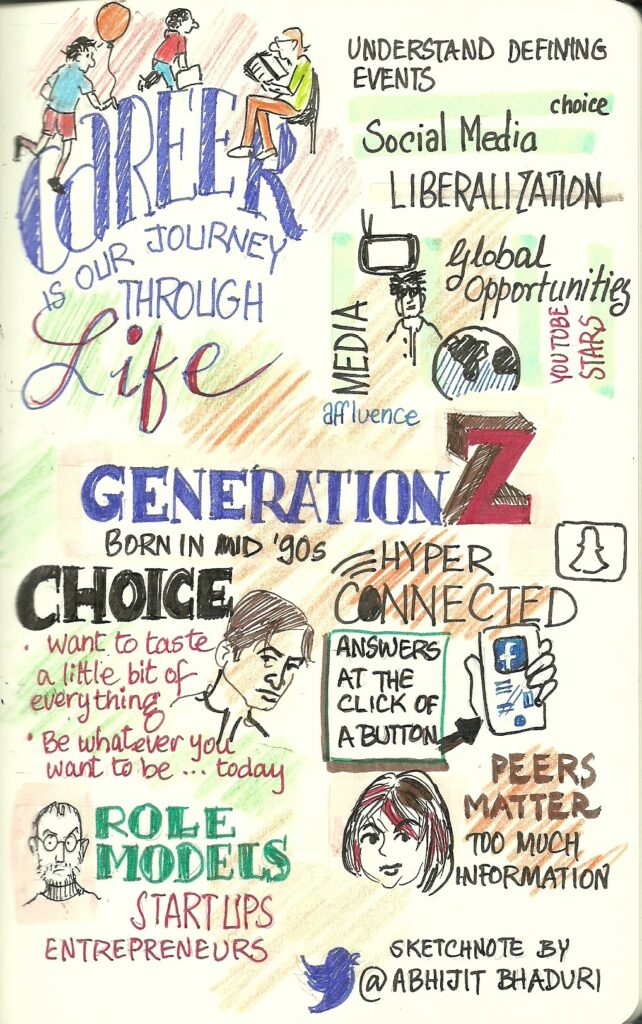 CAREER
IS OUR JOURNEY
THROUGH
Life
UNDERSTAND DEFINING
EVENTS
choice
Social Media
LIBERALIZATION
Global
Opportunities
MEDIA
YOUTUBE
STARS
affluence
GENERATION Z
BORN IN MID '90s
CHOICE
• Want to taste
a little bit of
everything
• Be whatever you
want to be ... today
HYPER
CONNECTED
ANSWERS
AT THE
CLICK OF
A BUTTON
f
ROLE
MODELS
STARTUPS
ENTREPRENEURS
PEERS
MATTER
TOO MUCH
INFORMATION
SKETCHNOTE BY
@ABHIJIT BHADURI